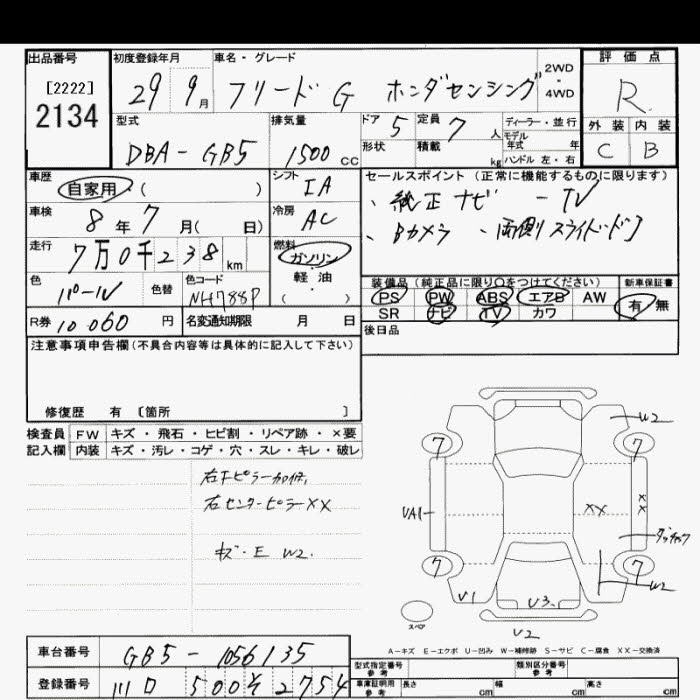 出品番号 初度登録年月 車名・グレード 評価点
[2222]
2134
29 9月 フリード G ホンダセンシング 2WD・4WD R
型式 排気量 ドア 5 定員 7人 ディーラー・並行 外装 内装
DBA-GB5 1500cc 形状 積載 kg モデル年式 年 ハンドル 左・右 C B
車歴 自家用・( ) シフト IA セールスポイント(正常に機能するものに限ります)
車検 8年7月( 日) 冷房 AC 、純正ナビ -TV
走行 7万0千238km 燃料 ガソリン・軽油・( ) 、Bカメラ 、両側スライドドア
色 パール 色替 色コード NH788P 装備品(純正品に限り○をつけてください) 新車保証書
PS PW ABS エアB AW 有・無
SR ナビ TV カワ
R券 10.060円 名変通知期限 月 日 後日品
注意事項申告欄(不具合内容等は具体的に記入して下さい)
修復歴 有 [箇所 ]
検査員 FW キズ・飛石・ヒビ割・リペア跡・×要
記入欄 内装 キズ・汚レ・コゲ・穴・スレ・キレ・破レ
右センターピラーXX
キズ・E W2.
W2
7 7
VA1 XX XX
7 7
W2
V1 V3
スペア
V2
A-キズ E-エクボ U-凹み W-補修跡 S-サビ C-腐食 XX-交換済
車台番号 GB5-1056135 型式指定番号 参考 類別区分番号 参考
登録番号 川口 500 そ 2754 車庫証明用 参考 長さ cm 幅 cm 高さ cm